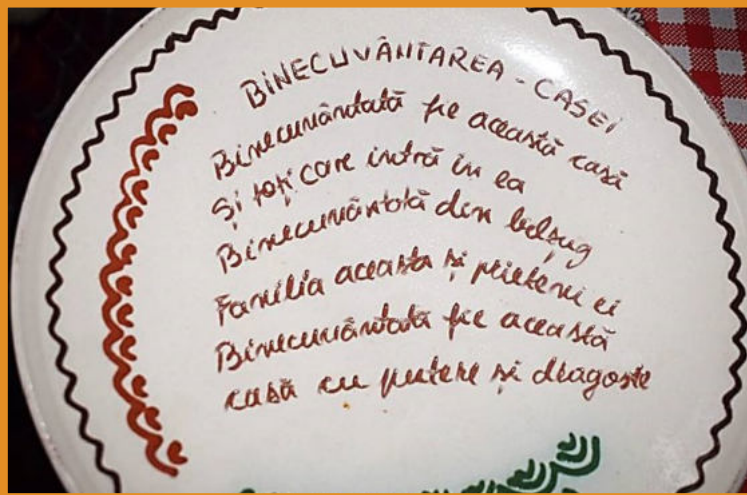 BINECUVÂNTAREA - CASEI
Binecuvântată fie această casă
Și toți care intră în ea
Binecuvântată din belșug
Familia aceasta și prieteni ei
Binecuvântată fie această
casă cu putere și dragoste